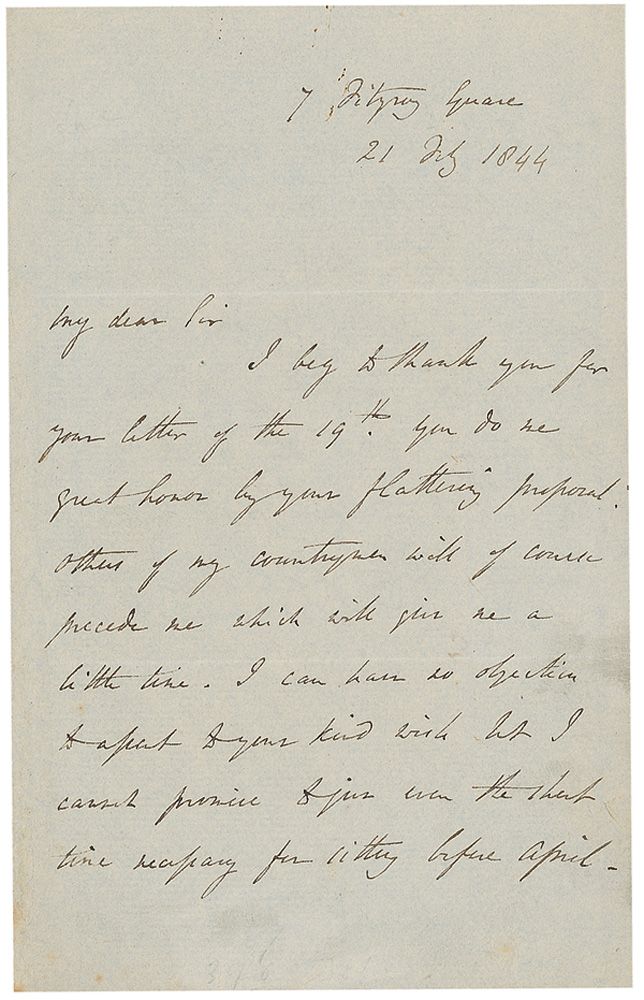 7 Fitzroy Square
21 Feby 1844
My dear Sir
I beg to thank you for
your letter of the 19th. you do me
great honor by your flattering proposal.
others of my countrymen will of course
precede me which will give me a
little time. I can have no objection
to assent to your kind wish but I
cannot promise to give even the short
time necessary for sitting before April -